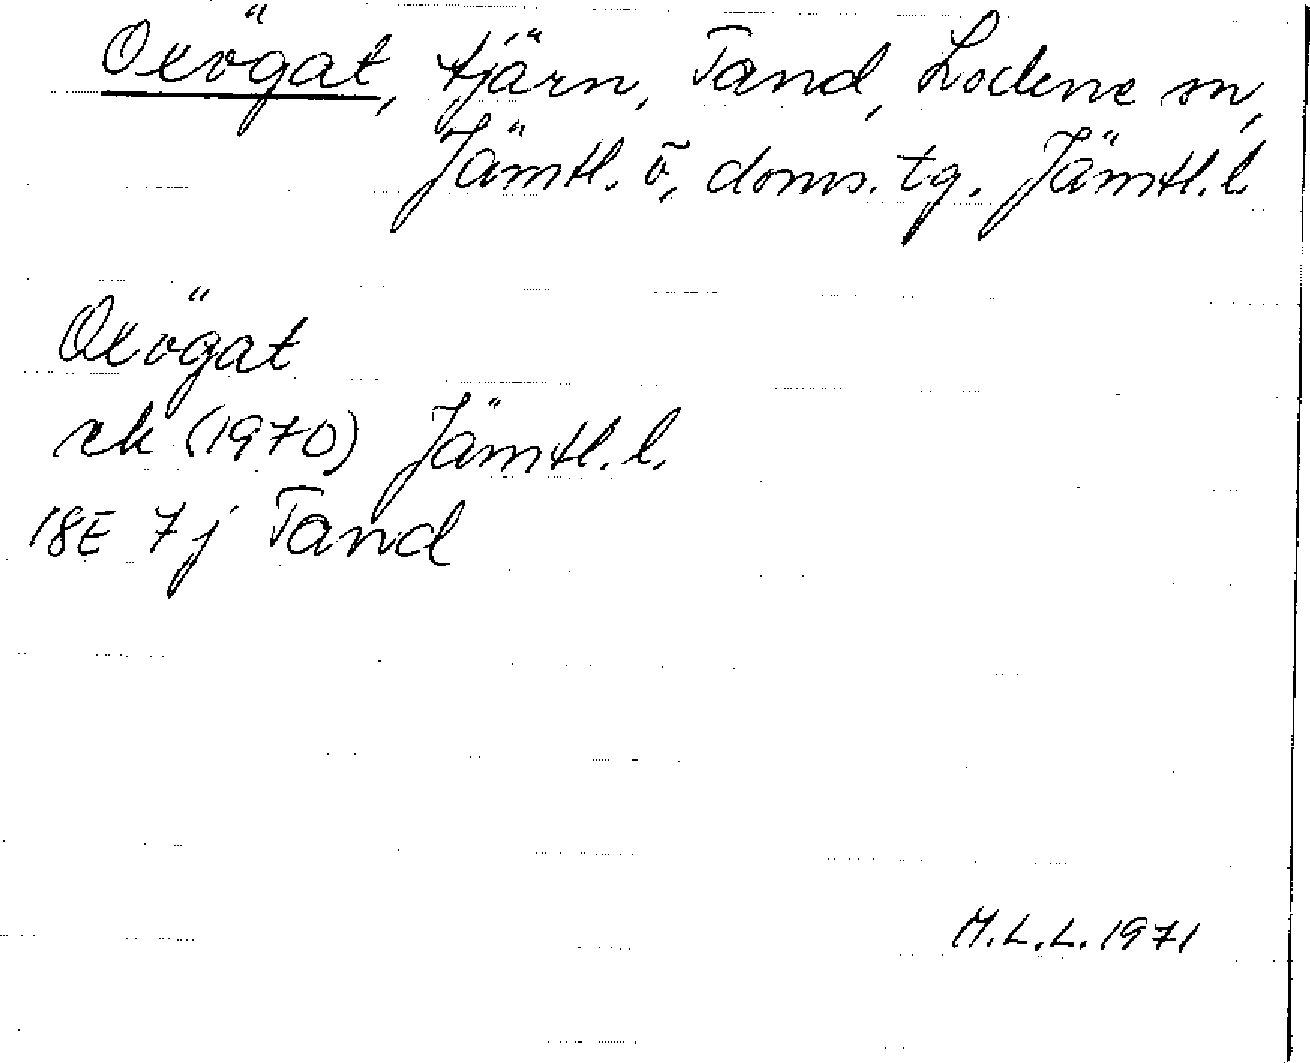 Oxögat, tjärn, Tand, Lockne sn,
Jämtl. ö. doms. tg. Jämtl. l.
Oxögat
ek (1970) Jämtl. l.
18E 7j Tand
M.L.L. 1971